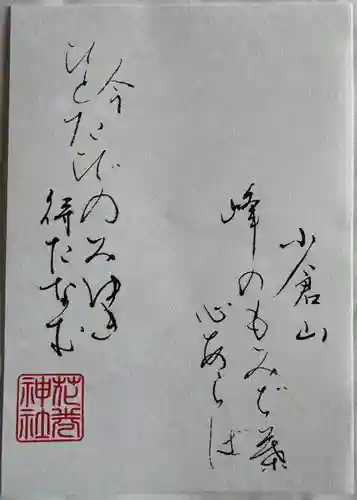 小倉山
峰のもみぢ葉
心あらば
今
ひとたびのみゆき
待たなむ
花巻
神社